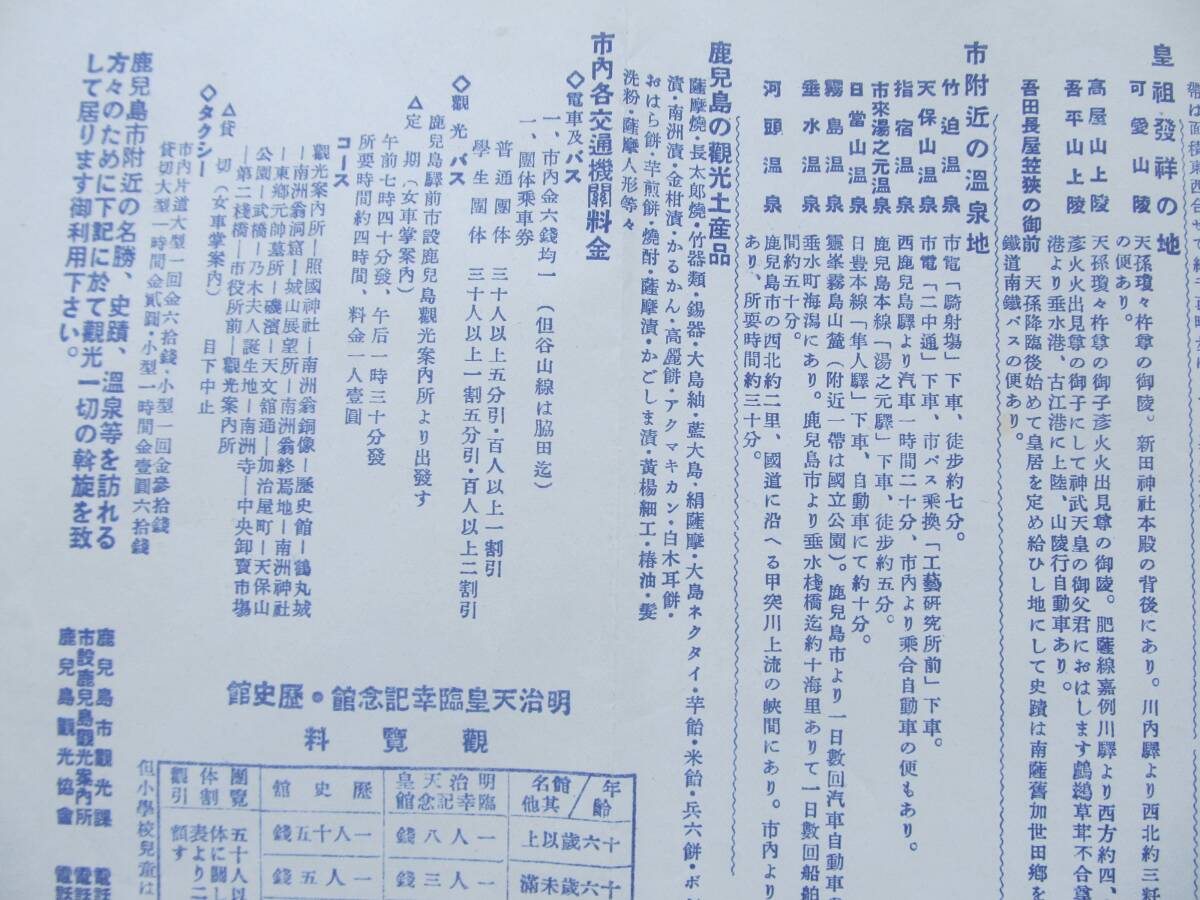 皇祖發祥の地
可愛山陵 天孫瓊々杵尊の御陵。新田神社本殿の背後にあり。川內驛より西北約三粁
の便あり。
高屋山上陵 天孫瓊々杵尊の御子彥火火出見尊の御陵。肥薩線嘉例川驛より西方約四、
吾平山上陵 彥火火出見尊の御子にして神武天皇の御父君におはします鸕鶿草葺不合尊
港より垂水港、古江港に上陸、山陵行自動車あり。
吾田長屋笠狹の御前 天孫降臨後始めて皇居を定め給ひし地にして史蹟は南薩舊加世田鄕を
鐵道南鐵バスの便あり。
市附近の溫泉地
竹迫溫泉 市電「騎射場」下車、徒步約七分。
天保山溫泉 市電「二中通」下車、市バス乘換「工藝硏究所前」下車。
指宿溫泉 西鹿兒島驛より汽車一時間二十分、市內より乘合自動車の便もあり。
市來湯之元溫泉 鹿兒島本線「湯之元驛」下車、徒步約五分。
日當山溫泉 日豊本線「隼人驛」下車、自動車にて約十分。
霧島溫泉 靈峯霧島山麓（附近一帶は國立公園）。鹿兒島市より一日數回汽車自動車の
垂水溫泉 垂水町海潟にあり。鹿兒島市より垂水棧橋迄約十海里ありて一日數回船舶
間約五十分。
河頭溫泉 鹿兒島市の西北約二里、國道に沿へる甲突川上流の峽間にあり。市內より
あり、所要時間約三十分。
鹿兒島の觀光土産品
薩摩燒・長太郎燒・竹器類・錫器・大島紬・藍大島・絹薩摩・大島ネクタイ・芋飴・米飴・兵六餅・ボン
漬・南洲漬・金柑漬・かるかん・高麗餅・アクマキカン・白木耳餅・
おはら餅・芋煎餅・燒酎・薩摩漬・かごしま漬・黃楊細工・椿油・髮
洗粉・薩摩人形等々
市內各交通機關料金
◇電車及バス
一、市內金六錢均一（但谷山線は脇田迄）
一、團体乘車劵
普通團体 三十人以上五分引・百人以上一割引
學生團体 三十人以上一割五分引・百人以上二割引
◇觀光バス
鹿兒島驛前市設鹿兒島觀光案內所より出發す
△定期（女車掌案內）
午前七時四十分發、午后一時三十分發
所要時間約四時間、料金一人壹圓
コース
觀光案內所ー照國神社ー南洲翁銅像ー歷史館ー鶴丸城
ー南洲翁洞窟ー城山展望所ー南洲翁終焉地ー南洲神社
ー東鄕元帥墓所ー磯濱ー天文舘通ー加治屋町ー天保山
公園ー武橋ー乃木夫人誕生地ー南洲寺ー中央卸賣市場
ー第二棧橋ー市役所前ー觀光案內所
△貸切（女車掌案內） 目下中止
◇タクシー
市內片道大型一回金六拾錢・小型一回金參拾錢
貸切大型一時間金貳圓・小型一時間金壹圓六拾錢
鹿兒島市附近の名勝、史蹟、溫泉等を訪れる
方々のために下記に於て觀光一切の斡旋を致
して居ります御利用下さい。
鹿兒島市觀光課 電話
市設鹿兒島觀光案內所 電話
鹿兒島觀光協會 電話
館史歷・館念記幸臨皇天治明
料覽觀
年齡/館名其他
明治天皇臨幸記念館
歷史館
團体觀覽割引
上以歲六十
錢八人一
錢五十人一
滿未歲六十
錢三人一
錢五人一
五十人以
体に關し
表より二
額す
但小學校兒童は